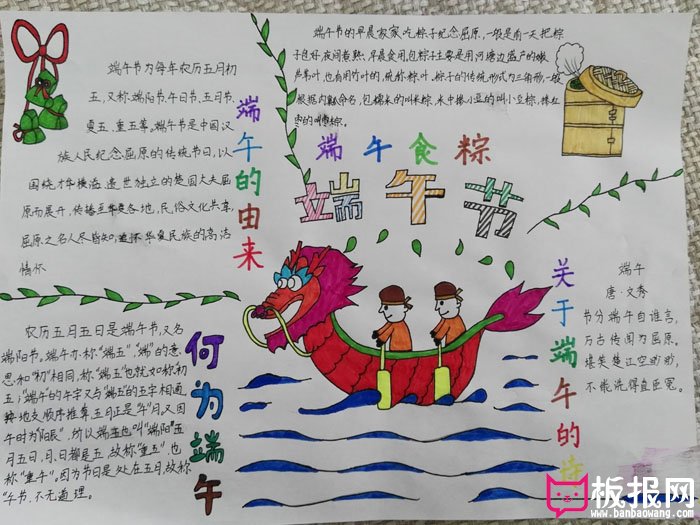 端午节为每年农历五月初
五,又称端阳节、午日节、五月节、
夏五、重五等。端午节是中国汉
族人民纪念屈原的传统节日,以
围绕才华横溢、遗世独立的楚国大夫屈
原而展开,传播至华夏各地,民俗文化共享,
屈原之名人尽皆知,追怀华夏民族的高洁
情怀
端午的由来
端午节的早晨家家吃粽子纪念屈原,一般是前一天把粽
子包好,夜间煮熟,早晨食用,包粽子主要是用河塘边盛产的嫩
芦苇叶,也有用竹叶的,统称粽叶,粽子的传统形式为三角形,一般
根据内瓤命名,包糯米的叫米粽,米中掺小豆的叫小豆粽,掺红
枣的叫枣粽。
端午食粽
端午节
农历五月五日是端午节,又名
端阳节。端午亦称“端五”,“端”的意
思和“初”相同,称“端五”也就如称初
五;“端午”的午字又与“端五”的五字相通
按地支顺序推算五月正是“午”月,又因
午时为“阳辰”,所以端五也叫“端阳”五
月五日,月、日都是五,故称“重五”也
称“重午”。因为节日是处在五月,故称
“午节,不无道理。
何为端午
关于端午的诗
端午
唐·文秀
节分端午自谁言,
万古传闻为屈原。
堪笑楚江空渺渺,
不能洗得直臣冤。
板报网
www.banbaowang.com